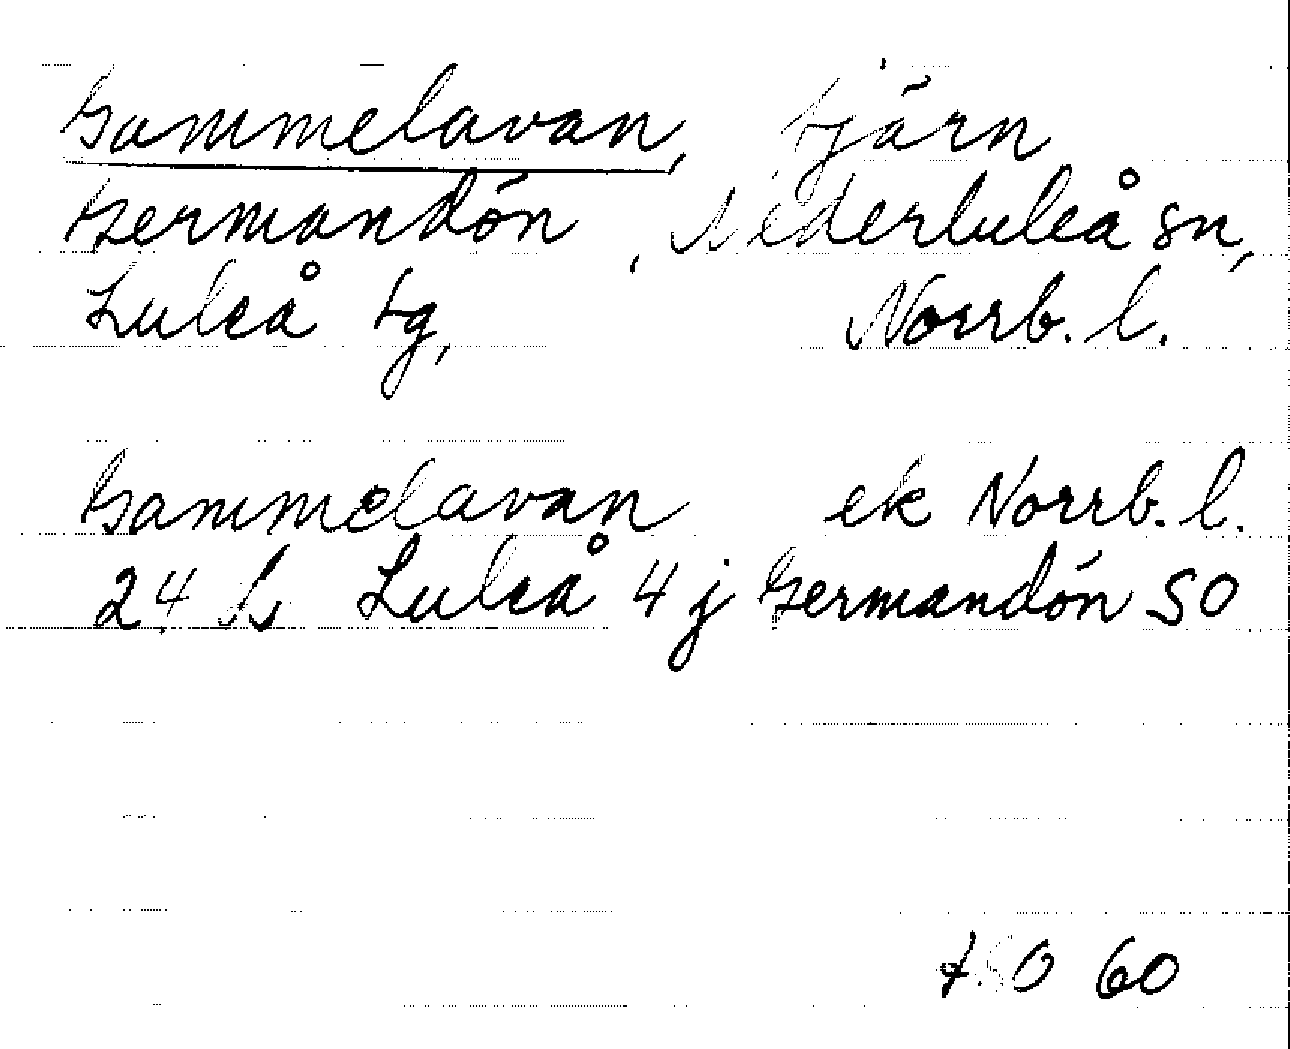 Gammelavan, tjärn
Germandön, Nederluleå sn,
Luleå tg, Norrb. l.
Gammelavan ek Norrb. l.
24 Luleå 4 j Germandön SO
60